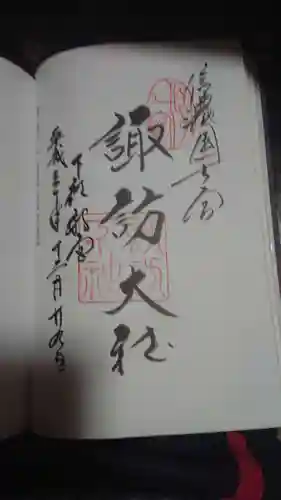 信濃國一之宮
諏訪大社
下社秋宮
平成三十年十二月廿九日